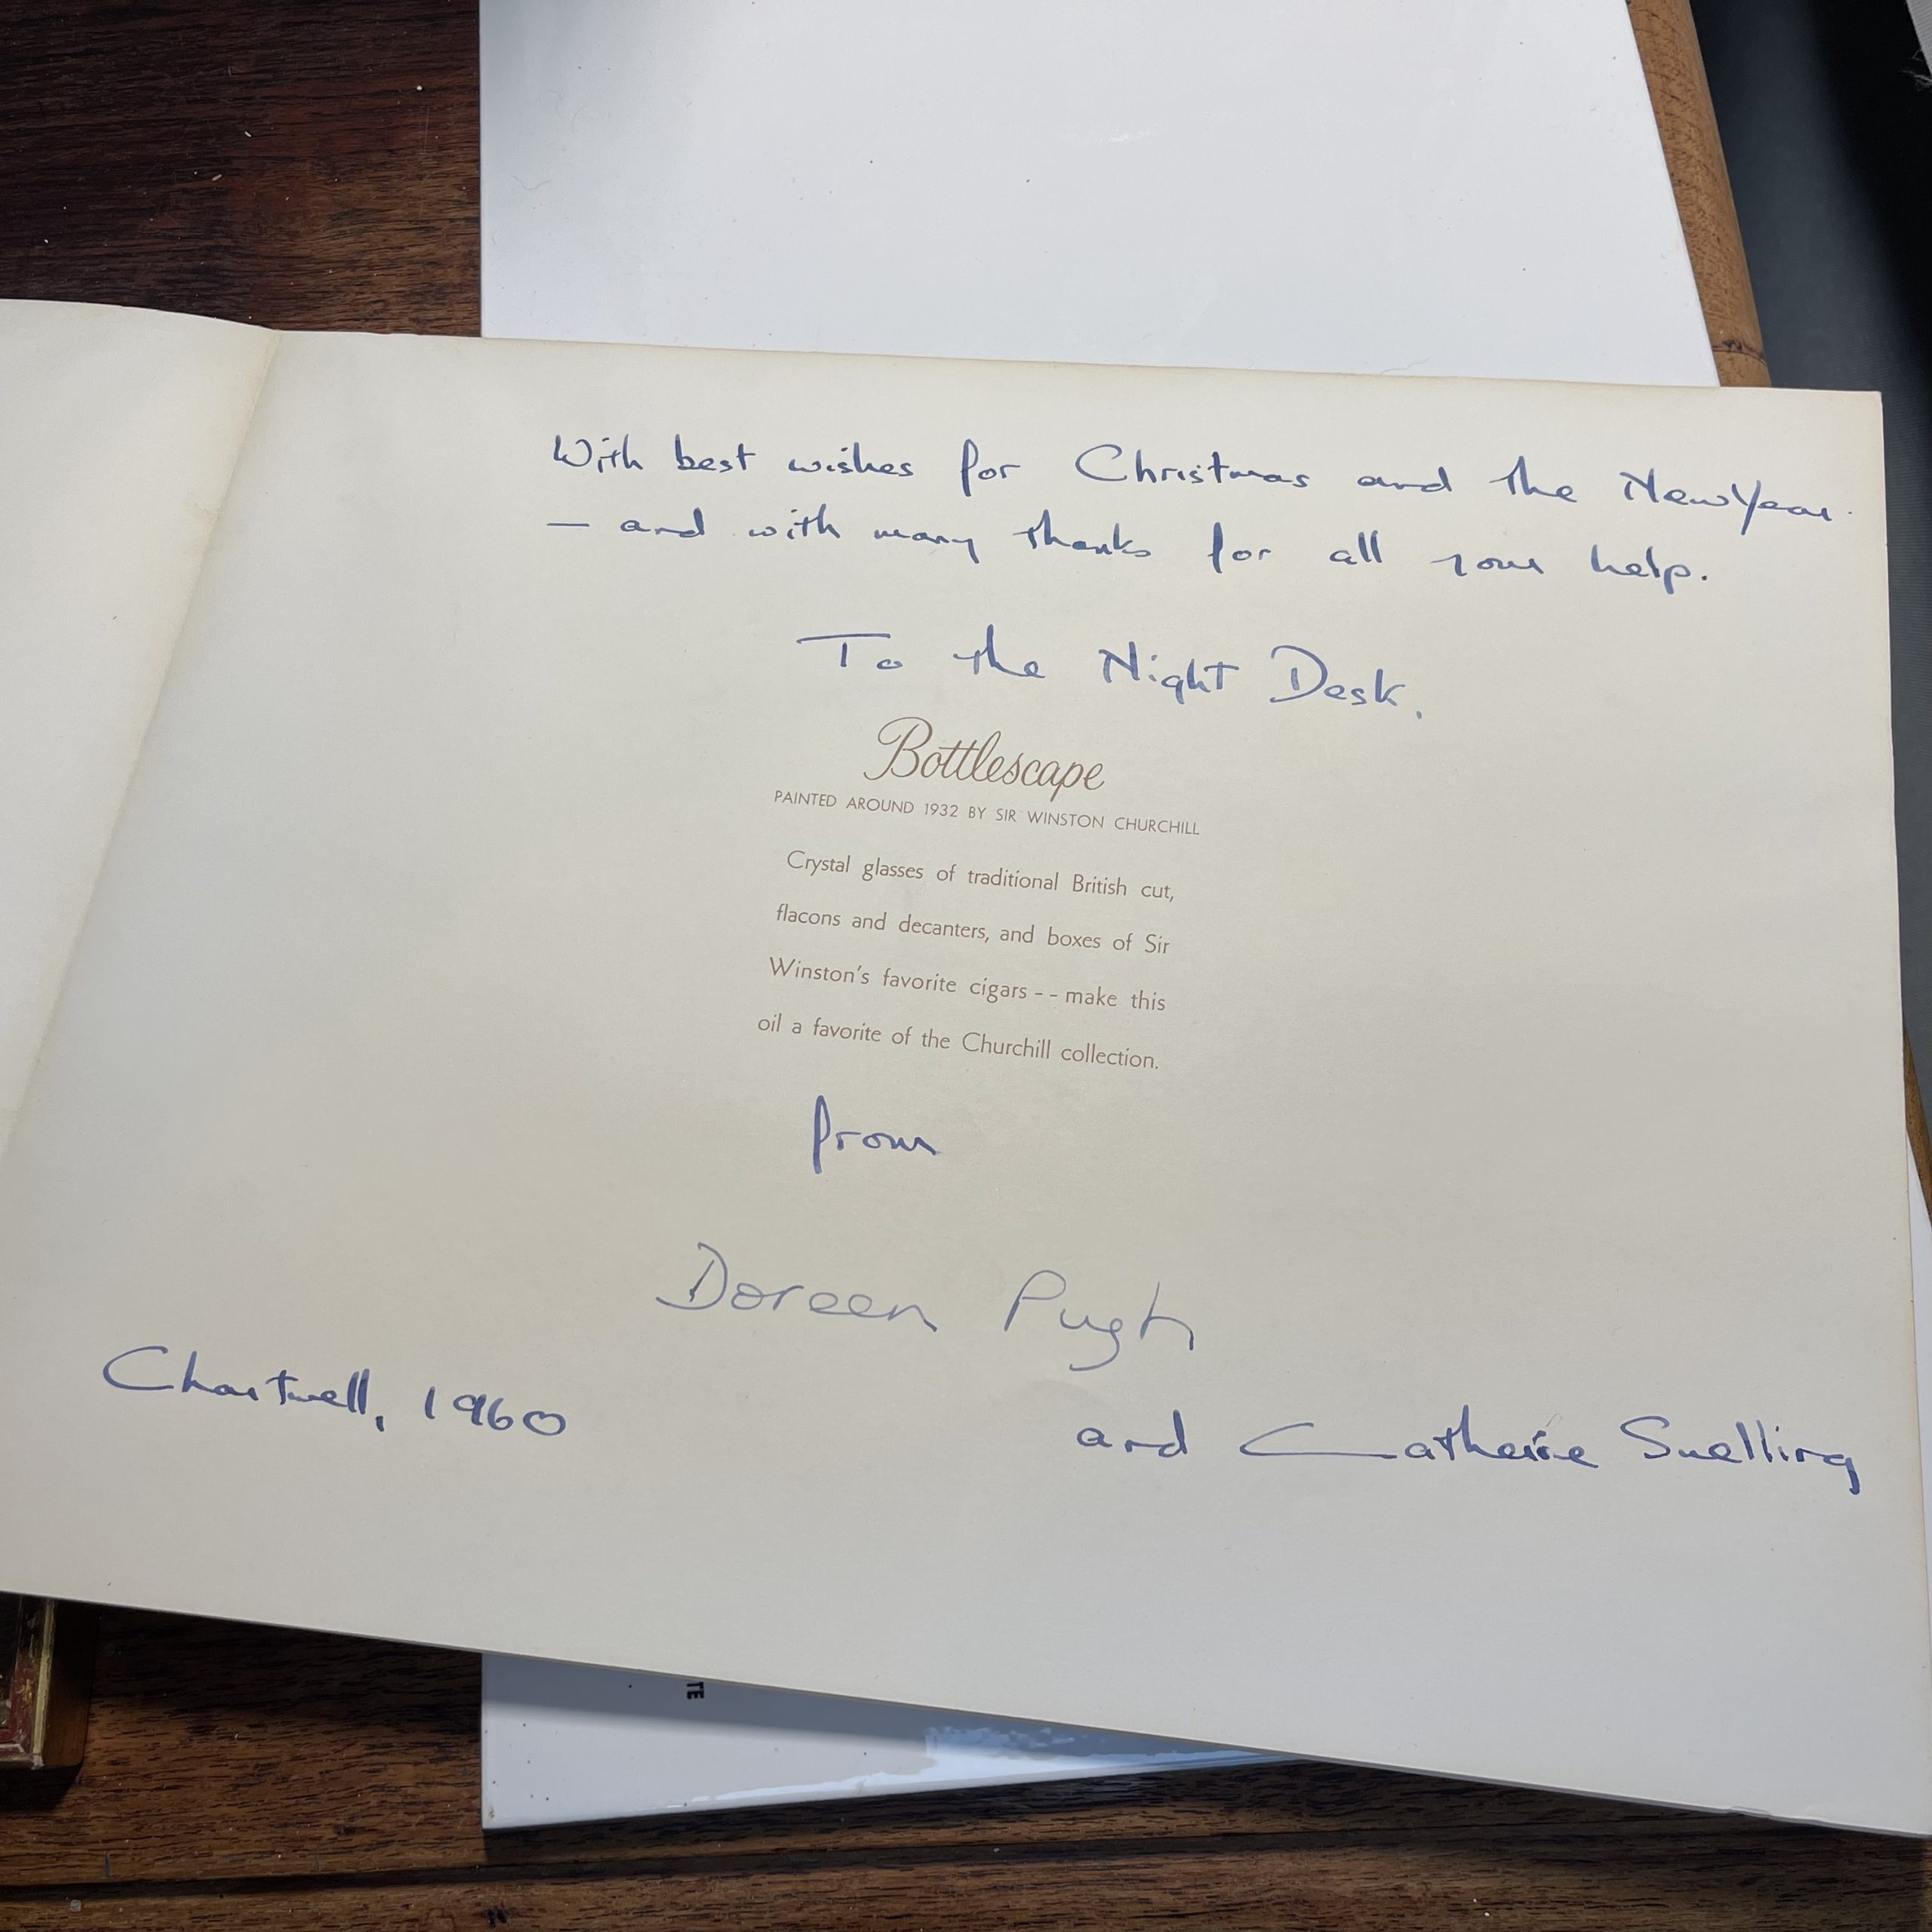 With best wishes for Christmas and the New Year.
— and with many thanks for all your help.
To the Night Desk.
Bottlescape
PAINTED AROUND 1932 BY SIR WINSTON CHURCHILL
Crystal glasses of traditional British cut,
flacons and decanters, and boxes of Sir
Winston's favorite cigars -- make this
oil a favorite of the Churchill collection.
from
Doreen Pugh
Chartwell, 1960
and Catherine Snelling
TE